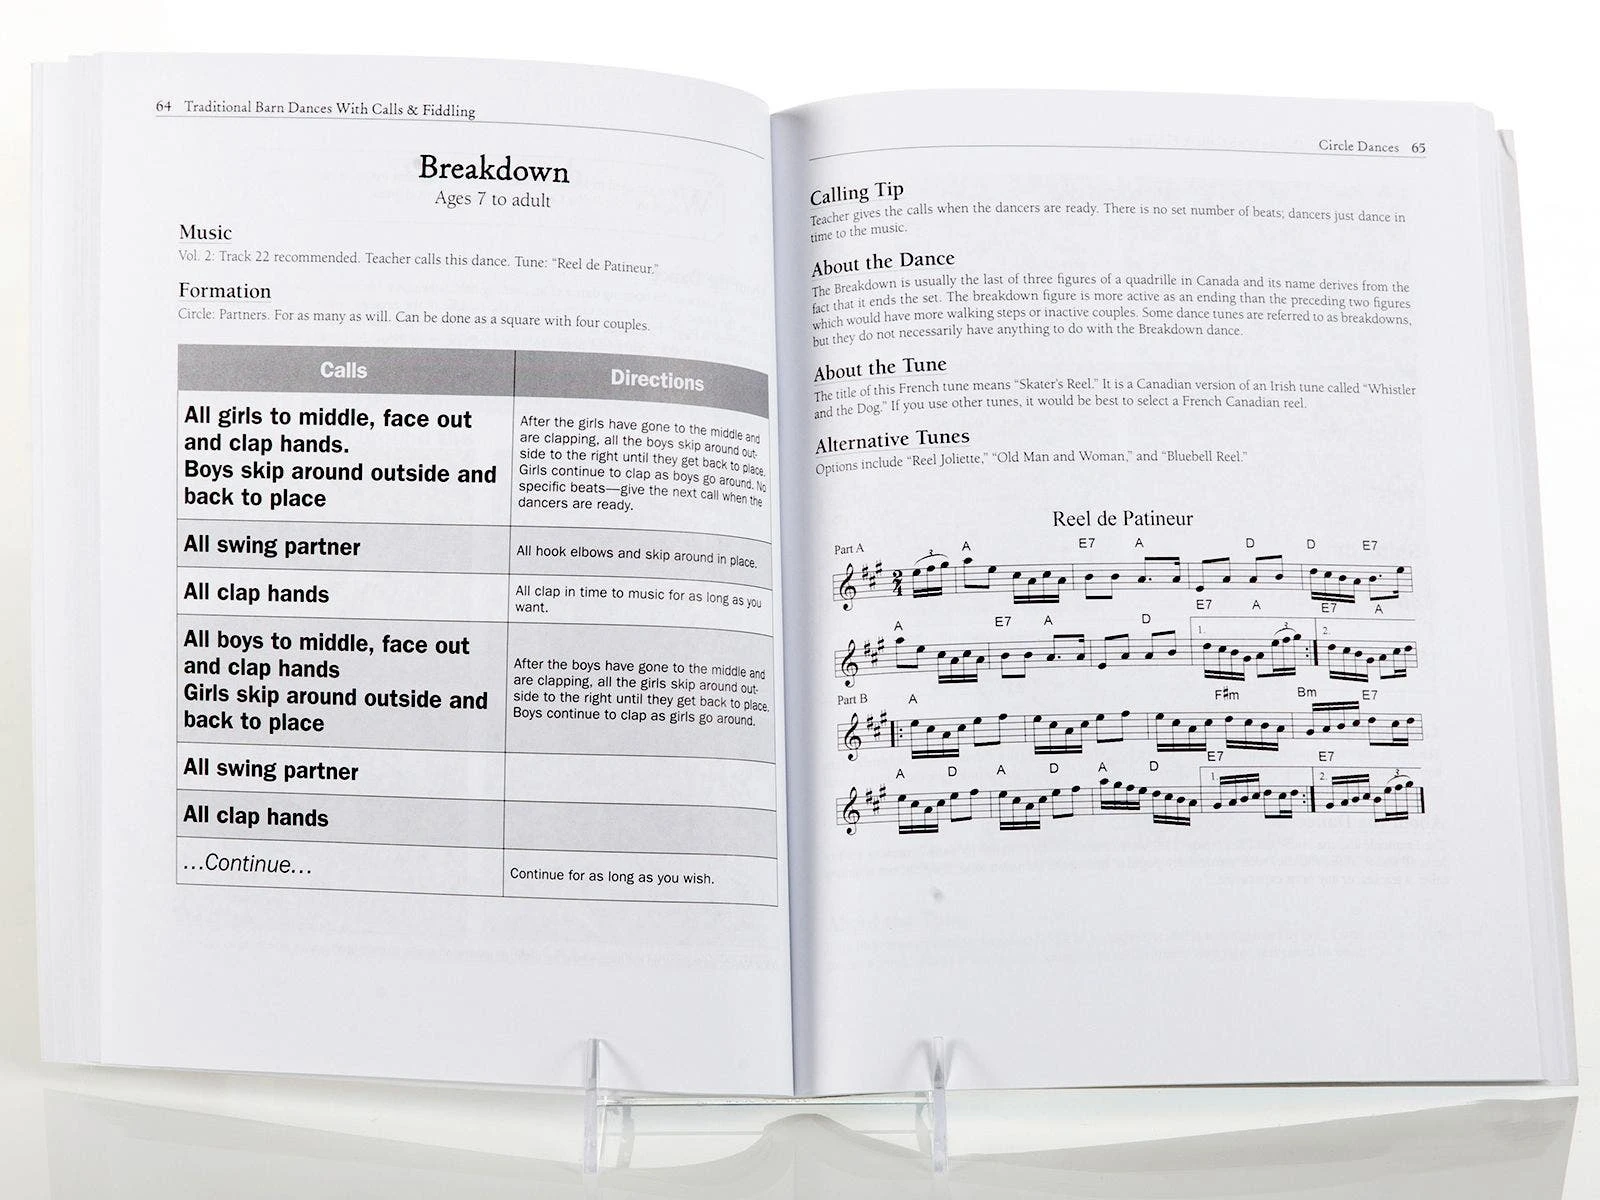 64 Traditional Barn Dances With Calls & Fiddling
Breakdown
Ages 7 to adult
Music
Vol. 2: Track 22 recommended. Teacher calls this dance. Tune: “Reel de Patineur.”
Formation
Circle: Partners. For as many as will. Can be done as a square with four couples.
Calls
Directions
All girls to middle, face out
and clap hands.
Boys skip around outside and
back to place
After the girls have gone to the middle and
are clapping, all the boys skip around out-
side to the right until they get back to place.
Girls continue to clap as boys go around. No
specific beats—give the next call when the
dancers are ready.
All swing partner
All hook elbows and skip around in place.
All clap hands
All clap in time to music for as long as you
want.
All boys to middle, face out
and clap hands
Girls skip around outside and
back to place
After the boys have gone to the middle and
are clapping, all the girls skip around out-
side to the right until they get back to place.
Boys continue to clap as girls go around.
All swing partner
All clap hands
...Continue...
Continue for as long as you wish.
Circle Dances 65
Calling Tip
Teacher gives the calls when the dancers are ready. There is no set number of beats; dancers just dance in
time to the music.
About the Dance
The Breakdown is usually the last of three figures of a quadrille in Canada and its name derives from the
fact that it ends the set. The breakdown figure is more active as an ending than the preceding two figures
which would have more walking steps or inactive couples. Some dance tunes are referred to as breakdowns,
but they do not necessarily have anything to do with the Breakdown dance.
About the Tune
The title of this French tune means “Skater’s Reel.” It is a Canadian version of an Irish tune called “Whistler
and the Dog.” If you use other tunes, it would be best to select a French Canadian reel.
Alternative Tunes
Options include “Reel Joliette,” “Old Man and Woman,” and “Bluebell Reel.”
Reel de Patineur
Part A 3 A E7 A D D E7
2
4
A E7 A D E7 A E7 A
1. 3 2.
Part B A F#m Bm E7
A D A D A D E7 E7
1. 2. 3